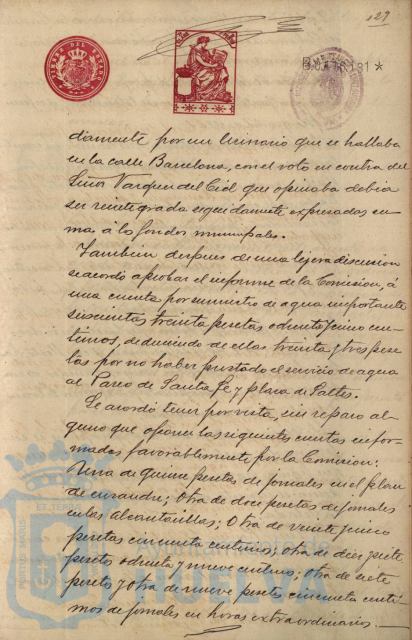 127
TIMBRE DEL ESTADO
diamente por un vecinario que se hallaba
en la calle Barcelona, con el voto en contra del
Señor Vazquez del Cid que opinaba debia
ser reintegrada seguidamente expresada su
ma á los fondos municipales.
Tambien despues de una lijera discusion
se acordó aprobar el informe de la Comision, á
una cuenta por suministro de agua importante
seiscientas treinta pesetas ochenta y cinco cen
timos, deduciendo de ellas treinta y tres pese
tas por no haber prestado el servicio de agua
al Paseo de Santa Fé y plaza de Saltes.
Se acordó tener por vista, sin reparo al
guno que oponer las siguientes cuentas infor
madas favorablemente por la Comision:
Una de quince pesetas de jornales en el plan
de ; Otra de doce pesetas de jornales
en las alcantarillas; Otra de veinte y cinco
pesetas cincuenta centimos; otra de diez y siete
pesetas ochenta y nueve centimos; otra de siete
pesetas y otra de nueve pesetas cincuenta centi
mos de jornales en horas extraordinarias.
Ayuntamiento de
HUELVA